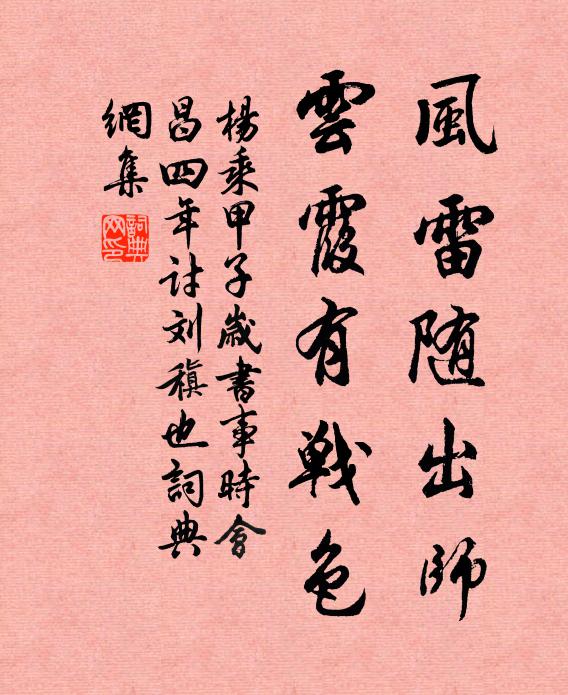 風雷随出師
雲霞有戰色
楊乘甲子歲書事時會
昌四年討刘稹也詞典
網集
詞典网印